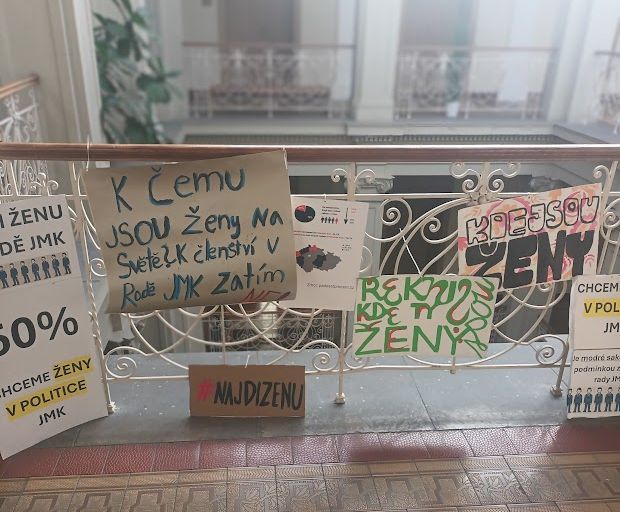 I ŽENU
DĚ JMK
50%
CHCEME ŽENY
V POLITICE
JMK
K Čemu
JSOU Ženy Na
Světě?K členství v
Radě JMK zatím
NE
#NAJDIZENU
ŘEKNI
KDE TY
ŽENY
KDEJSOU
ŽENY
CHCEME
V POL
JM
Je modré sak
podmínkou z
rady JM